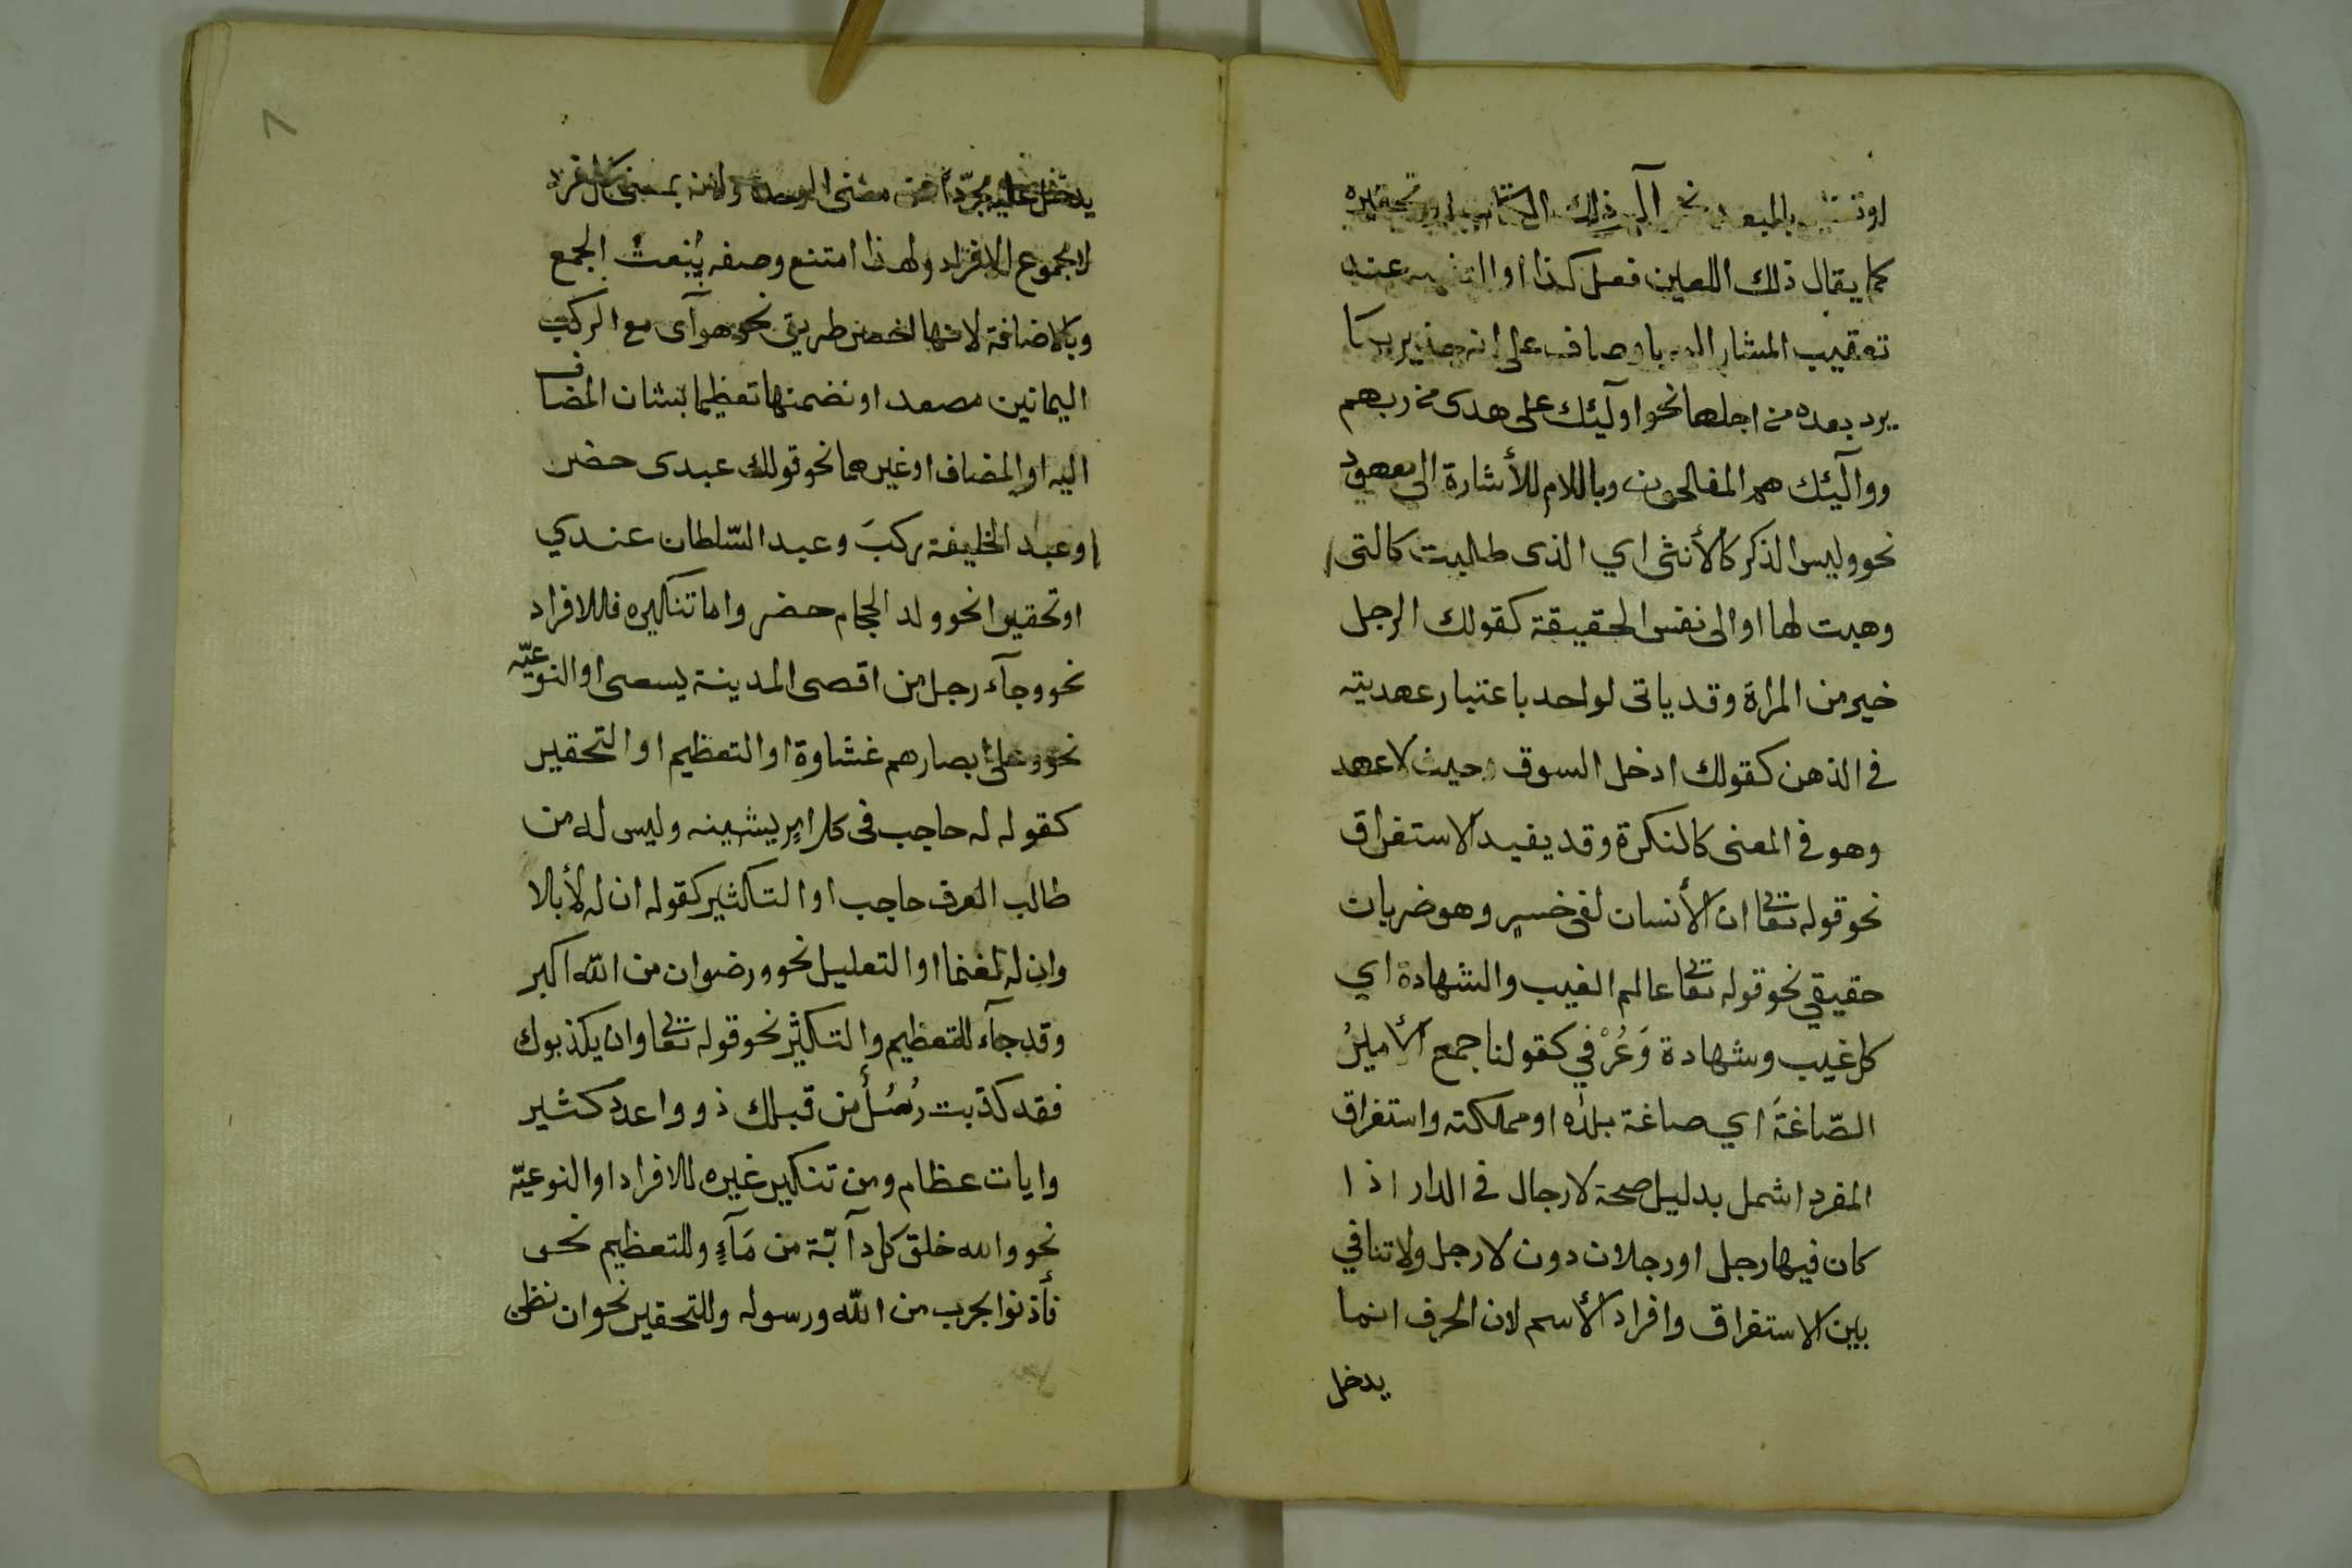 بالبعد نحو آلم ذلك الكتاب او تحقيره
كما يقال ذلك اللعين فعل كذا او التنبيه عند
تعقيب المشار اليه باوصاف على انه جدير بما
يرد بعده من اجلها نحو اولٓئك على هدى من ربهم
وواولٓئك هم المفلحون وباللام للأشارة الى معهود
نحو وليس الذكر كالأنثى اي الذى طلبت كالتى
وهبت لها او الى نفس الحقيقة كقولك الرجل
خير من المراة وقد ياتى لواحد باعتبار عهديته
في الذهن كقولك ادخل السوق حيث لا عهد
وهو في المعنى كالنكرة وقد يفيد الاستغراق
نحو قوله تعالى ان الأنسان لفى خسر وهو ضربان
حقيقي نحو قوله تعالى عالم الغيب والشهادة اي
كل غيب وشهادة وَعُرْفي كقولنا جمع الأميرُ
الصّاغةَ اي صاغة بلده او مملكته واستغراق
المفرد اشمل بدليل صحة لا رجال في الدار اذا
كان فيها رجل او رجلان دون لا رجل ولا تنافي
بين الاستغراق وافراد الأسم لان الحرف انما
يدخل
يدخل عليه مجرّدا عن معنى الوحدة ولانه بمعنى كل فرد
لا مجموع الافراد ولهذا امتنع وصفه بنعت الجمع
وبالاضافة لانها اخصر طريق نحو هوآى مع الركب
اليمانين مصعد او تضمنها تعظيما بشان المضاف
اليه او المضاف او غيرهما نحو قولك عبدى حضر
او عبد الخليفة ركبَ وعبد السّلطان عندي
او تحقيرا نحو ولد الحجام حضر واما تنكيره فللافراد
نحو وجآء رجل من اقصى المدينة يسعى او النوعيّه
نحو وعلى ابصارهم غشاوة او التعظيم او التحقير
كقوله له حاجب فى كل امر يشينه وليس له من
طالب العرف حاجب او التكثير كقوله ان له لأبلا
وان له لغنما او التعليل نحو ورضوان من اللّه اكبر
وقد جآء للتعظيم والتكثير نحو قوله تعالى وان يكذبوك
فقد كذّبت رُسُل من قبلك ذووا عدد كثير
وايات عظام ومن تنكير غيره للافراد او النوعيّه
نحو والله خلق كل دآبّة من مَآءٍ وللتعظيم نحو
فأذنوا بحرب من اللّه ورسوله وللتحقير نحو ان نظن